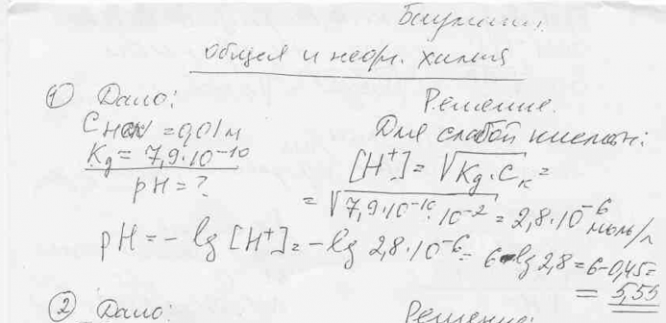 общая и неорг. химия
① Дано:
C HCN = 0,01 м
Kд = 7,9·10⁻¹⁰
pH = ?
Решение.
Для слабой кислоты:
[H⁺] = √Kд·Cк =
= √7,9·10⁻¹⁰·10⁻² = 2,8·10⁻⁶ моль/л
pH = - lg [H⁺] = -lg 2,8·10⁻⁶ = 6-lg 2,8 = 6-0,45 =
= 5,55
② Дано:
Решение: